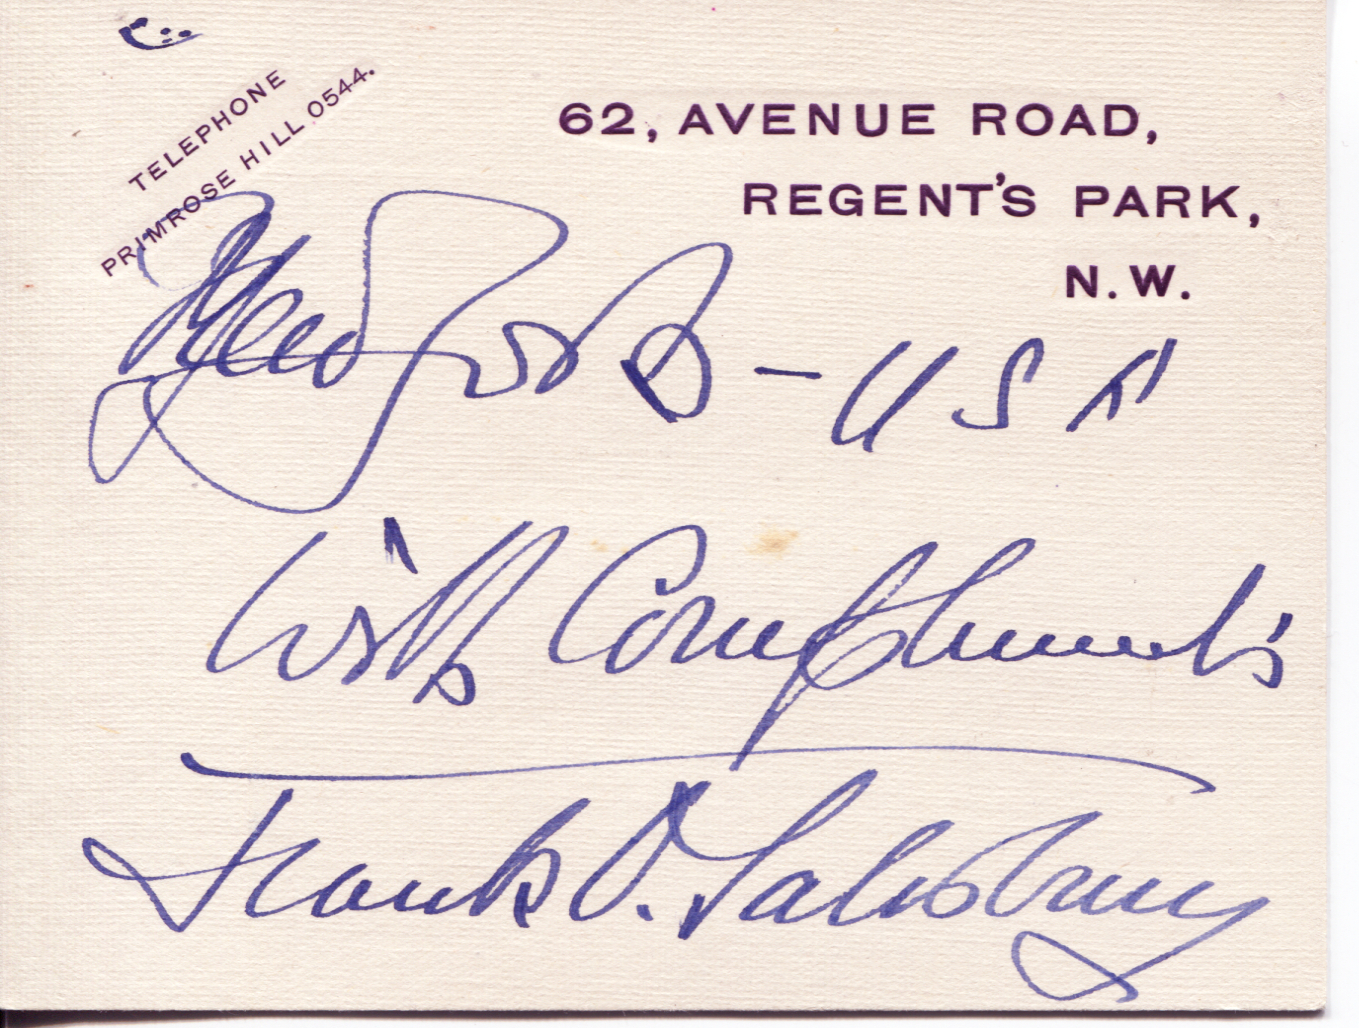 TELEPHONE
PRIMROSE HILL 0544.
62, AVENUE ROAD,
REGENT'S PARK,
N.W.
- USA
With Compliments
Frank O. Salisbury